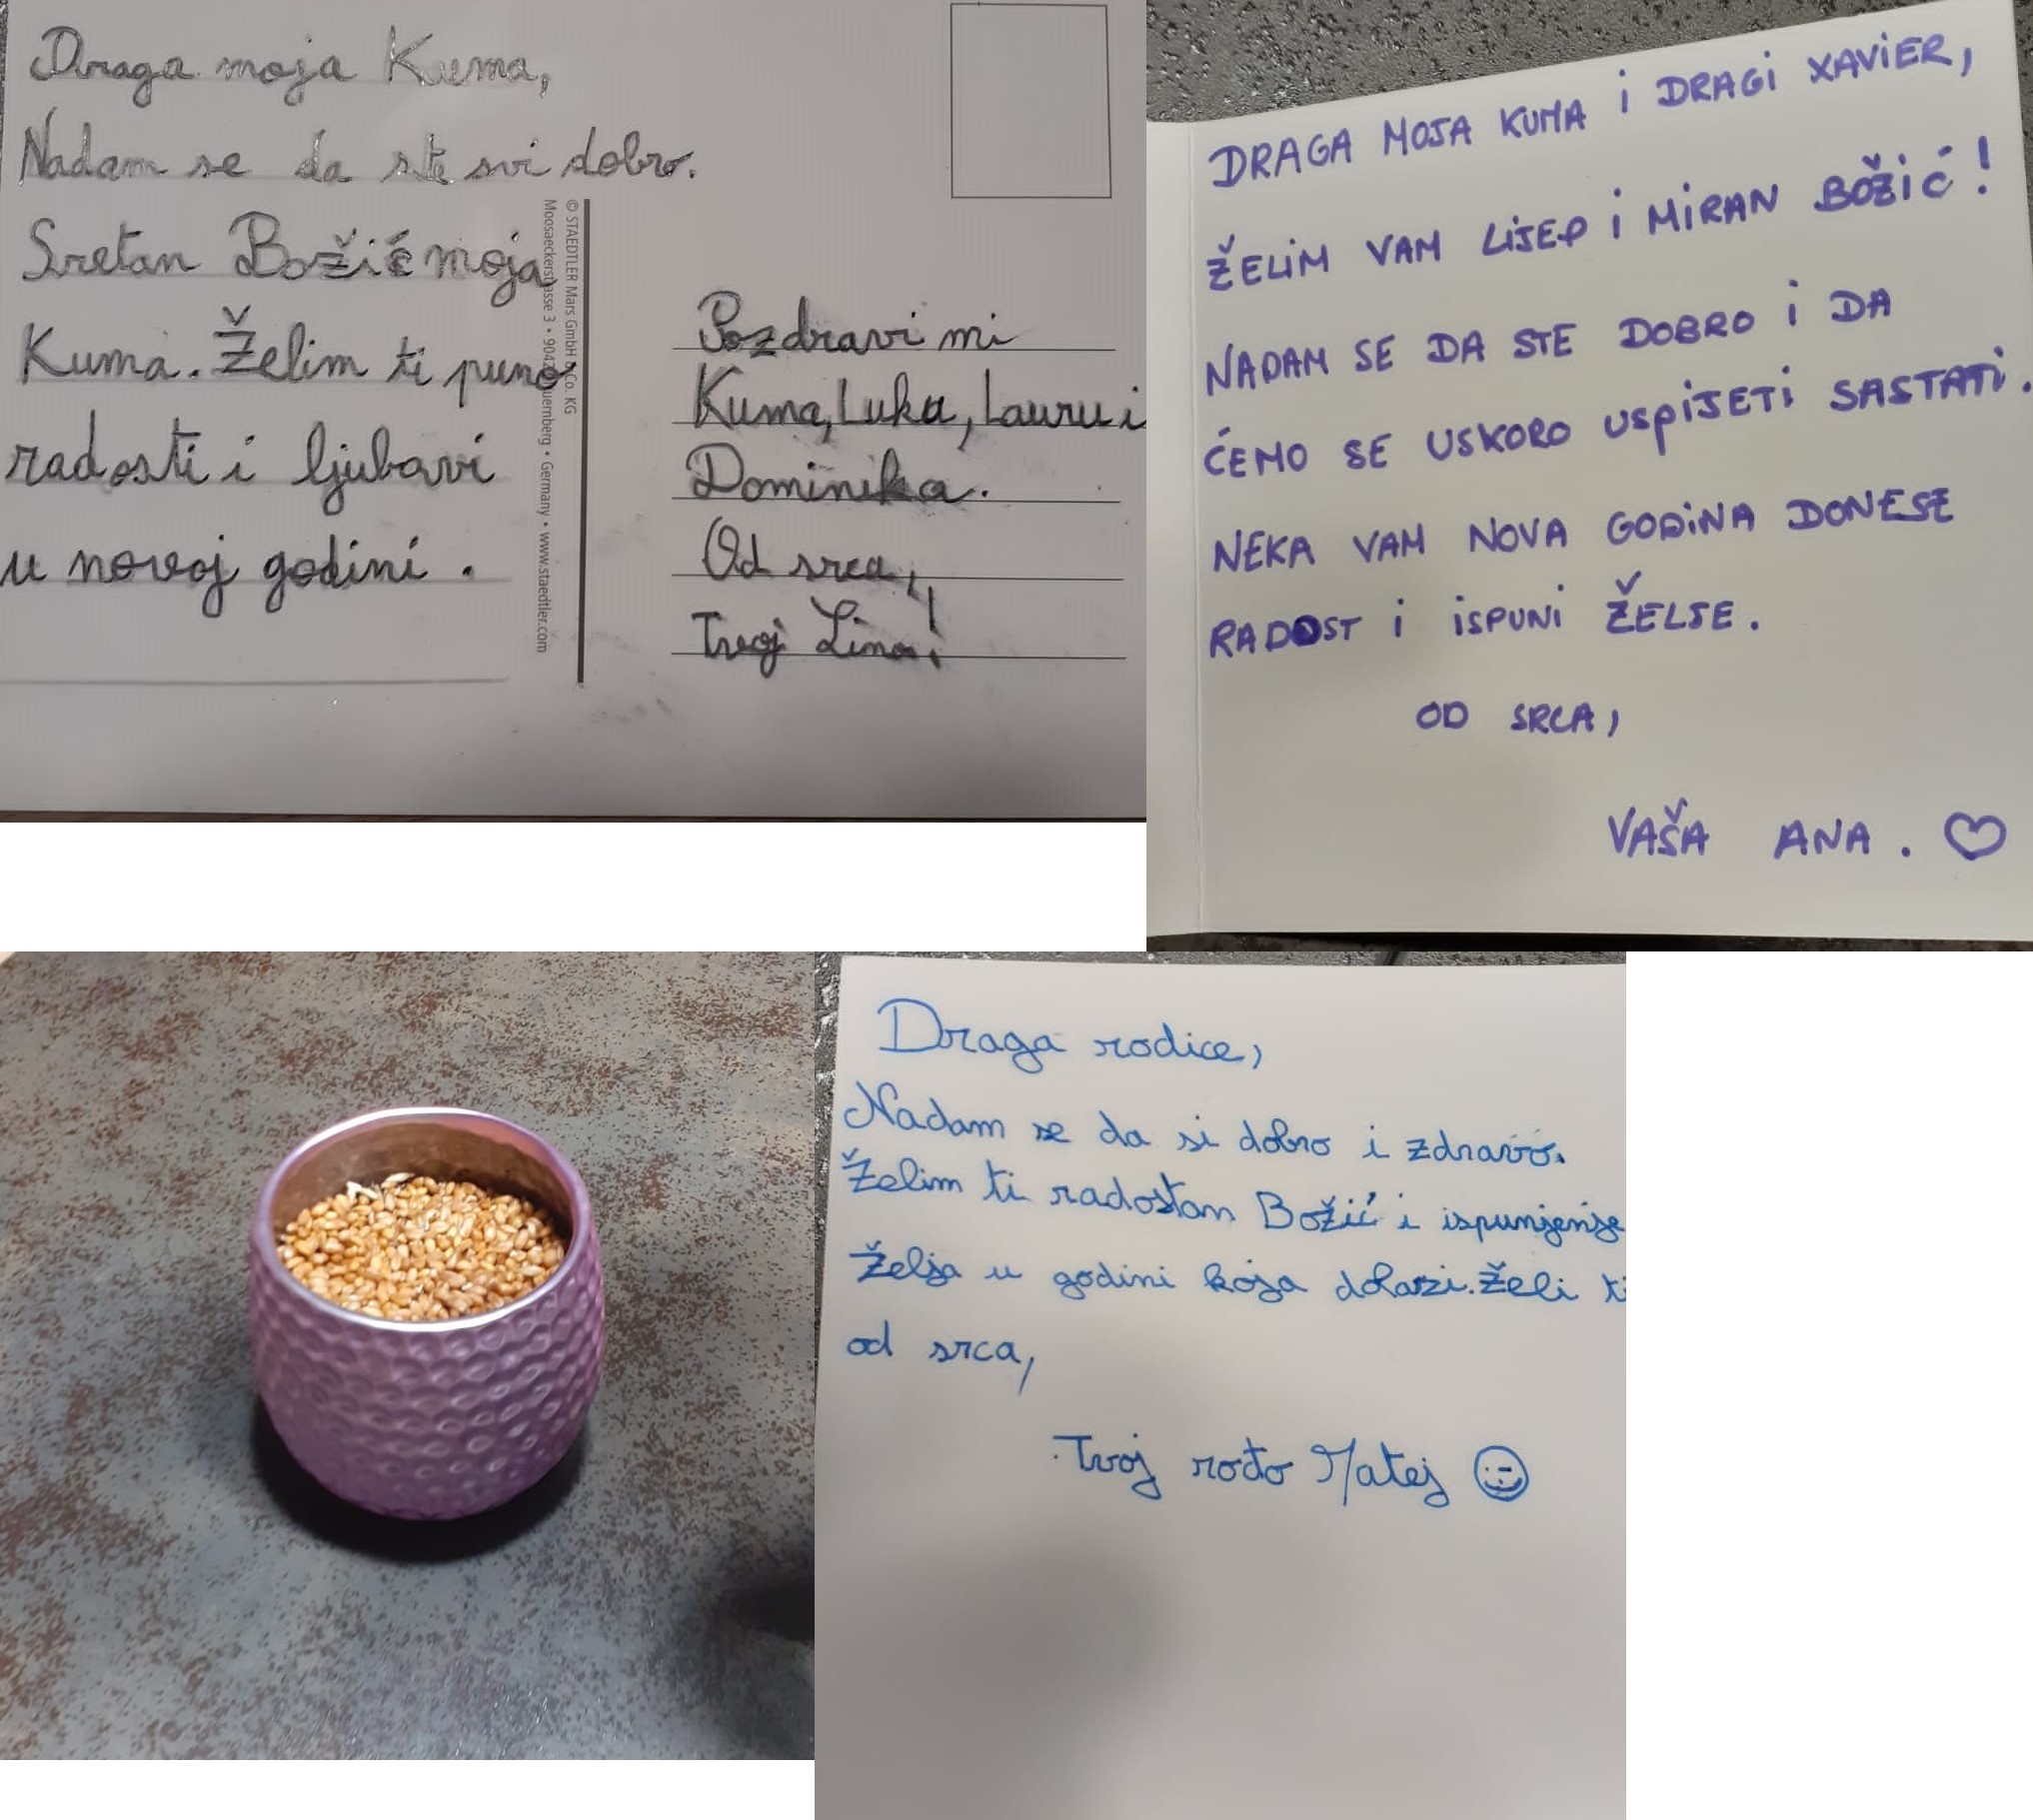 Draga moja Kuma,
Nadam se da ste svi dobro.
Sretan Božić moja
Kuma. Želim ti puno
radosti i ljubavi
u novoj godini.
© STAEDTLER Mars GmbH & Co. KG
Moosaeckerstrasse 3 • 904 uernberg • Germany • www.staedtler.com
Pozdravi mi
Kuma, Luka, Lauru i
Dominika.
Od srca,
Tvoj Lino!
DRAGA MOJA KUMA i DRAGi XAViER,
ŽELiM VAM LiJEP i MiRAN BOŽiĆ!
NADAM SE DA STE DOBRO i DA
ĆEMO SE USKORO USPiJETi SASTATi.
NEKA VAM NOVA GODiNA DONESE
RADOST i iSPUNi ŽELJE.
OD SRCA,
VAŠA ANA.
Draga rodice,
Nadam se da si dobro i zdravo.
Želim ti radostan Božić i ispunjenje
želja u godini koja dolazi. Želi ti
od srca,
Tvoj rođo Matej